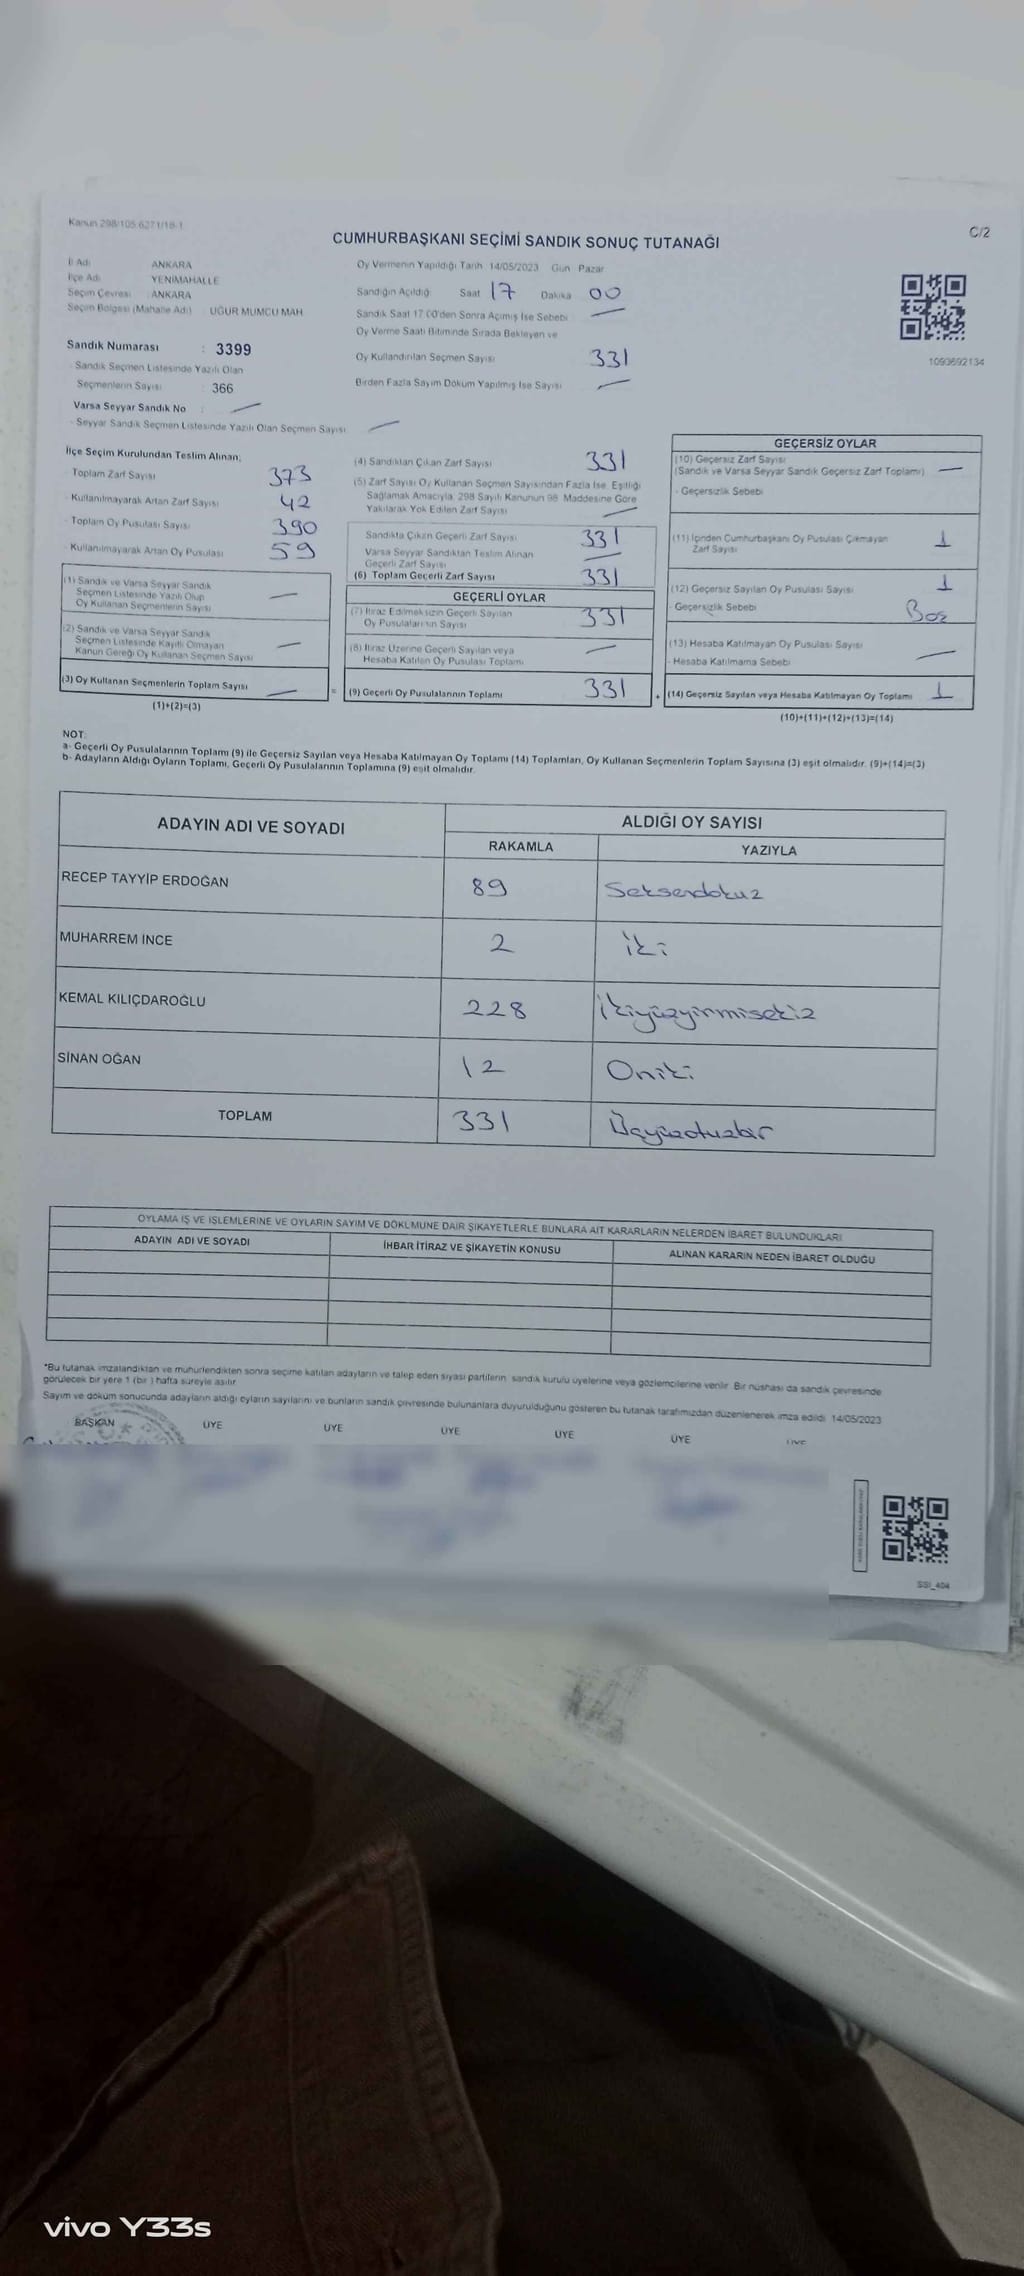 Kanun 298/105 6271/18-1
C/2
CUMHURBAŞKANI SEÇİMİ SANDIK SONUÇ TUTANAĞI
İl Adı ANKARA
İlçe Adı YENİMAHALLE
Seçim Çevresi : ANKARA
Seçim Bölgesi (Mahalle Adı) : UĞUR MUMCU MAH
Sandık Numarası : 3399
- Sandık Seçmen Listesinde Yazılı Olan
Seçmenlerin Sayısı : 366
Varsa Seyyar Sandık No : —
- Seyyar Sandık Seçmen Listesinde Yazılı Olan Seçmen Sayısı —
Oy Vermenin Yapıldığı Tarih 14/05/2023 Gün Pazar
Sandığın Açıldığı Saat 17 Dakika 00
Sandık Saat 17 00'den Sonra Açmış İse Sebebi : —
Oy Verme Saati Bitiminde Sırada Bekleyen ve
Oy Kullandırılan Seçmen Sayısı 331
Birden Fazla Sayım Döküm Yapılmış İse Sayısı —
1093692134
İlçe Seçim Kurulundan Teslim Alınan;
- Toplam Zarf Sayısı 373
- Kullanılmayarak Artan Zarf Sayısı 42
- Toplam Oy Pusulası Sayısı 390
- Kullanılmayarak Artan Oy Pusulası 59
(1) Sandık ve Varsa Seyyar Sandık
Seçmen Listesinde Yazılı Olup
Oy Kullanan Seçmenlerin Sayısı —
(2) Sandık ve Varsa Seyyar Sandık
Seçmen Listesinde Kayıtlı Olmayan
Kanun Gereği Oy Kullanan Seçmen Sayısı —
(3) Oy Kullanan Seçmenlerin Toplam Sayısı —
(1)+(2)=(3)
=
(4) Sandıktan Çıkan Zarf Sayısı 331
(5) Zarf Sayısı Oy Kullanan Seçmen Sayısından Fazla İse Eşitliği
Sağlamak Amacıyla 298 Sayılı Kanunun 98 Maddesine Göre
Yakılarak Yok Edilen Zarf Sayısı —
Sandıkta Çıkan Geçerli Zarf Sayısı 331
Varsa Seyyar Sandıktan Teslim Alınan
Geçerli Zarf Sayısı —
(6) Toplam Geçerli Zarf Sayısı 331
GEÇERLİ OYLAR
(7) İtiraz Edilmeksizin Geçerli Sayılan
Oy Pusulalarının Sayısı 331
(8) İtiraz Üzerine Geçerli Sayılan veya
Hesaba Katılan Oy Pusulası Toplamı —
(9) Geçerli Oy Pusulalarının Toplamı 331
+
GEÇERSİZ OYLAR
(10) Geçersiz Zarf Sayısı
(Sandık ve Varsa Seyyar Sandık Geçersiz Zarf Toplamı) —
- Geçersizlik Sebebi
(11) İçinden Cumhurbaşkanı Oy Pusulası Çıkmayan
Zarf Sayısı 1
(12) Geçersiz Sayılan Oy Pusulası Sayısı 1
- Geçersizlik Sebebi Boş
(13) Hesaba Katılmayan Oy Pusulası Sayısı —
- Hesaba Katılmama Sebebi
(14) Geçersiz Sayılan veya Hesaba Katılmayan Oy Toplamı 1
(10)+(11)+(12)+(13)=(14)
NOT:
a- Geçerli Oy Pusulalarının Toplamı (9) ile Geçersiz Sayılan veya Hesaba Katılmayan Oy Toplamı (14) Toplamları, Oy Kullanan Seçmenlerin Toplam Sayısına (3) eşit olmalıdır. (9)+(14)=(3)
b- Adayların Aldığı Oyların Toplamı, Geçerli Oy Pusulalarının Toplamına (9) eşit olmalıdır.
ADAYIN ADI VE SOYADI ALDIĞI OY SAYISI
RAKAMLA YAZIYLA
RECEP TAYYİP ERDOĞAN 89 Seksendokuz
MUHARREM İNCE 2 İki
KEMAL KILIÇDAROĞLU 228 İkiyüzyirmisekiz
SİNAN OĞAN 12 Oniki
TOPLAM 331 Üçyüzotuzbir
OYLAMA İŞ VE İŞLEMLERİNE VE OYLARIN SAYIM VE DÖKÜMÜNE DAİR ŞİKAYETLERLE BUNLARA AİT KARARLARIN NELERDEN İBARET BULUNDUKLARI
ADAYIN ADI VE SOYADI İHBAR İTİRAZ VE ŞİKAYETİN KONUSU ALINAN KARARIN NEDEN İBARET OLDUĞU
*Bu tutanak imzalandıktan ve mühürlendikten sonra seçime katılan adayların ve talep eden siyasi partilerin sandık kurulu üyelerine veya gözlemcilerine verilir. Bir nüshası da sandık çevresinde
görülecek bir yere 1 (bir) hafta süreyle asılır.
Sayım ve döküm sonucunda adayların aldığı oyların sayılarını ve bunların sandık çevresinde bulunanlara duyurulduğunu gösteren bu tutanak tarafımızdan düzenlenerek imza edildi. 14/05/2023
BAŞKAN ÜYE ÜYE ÜYE ÜYE ÜYE ÜYE
SSİ_404
vivo Y33s